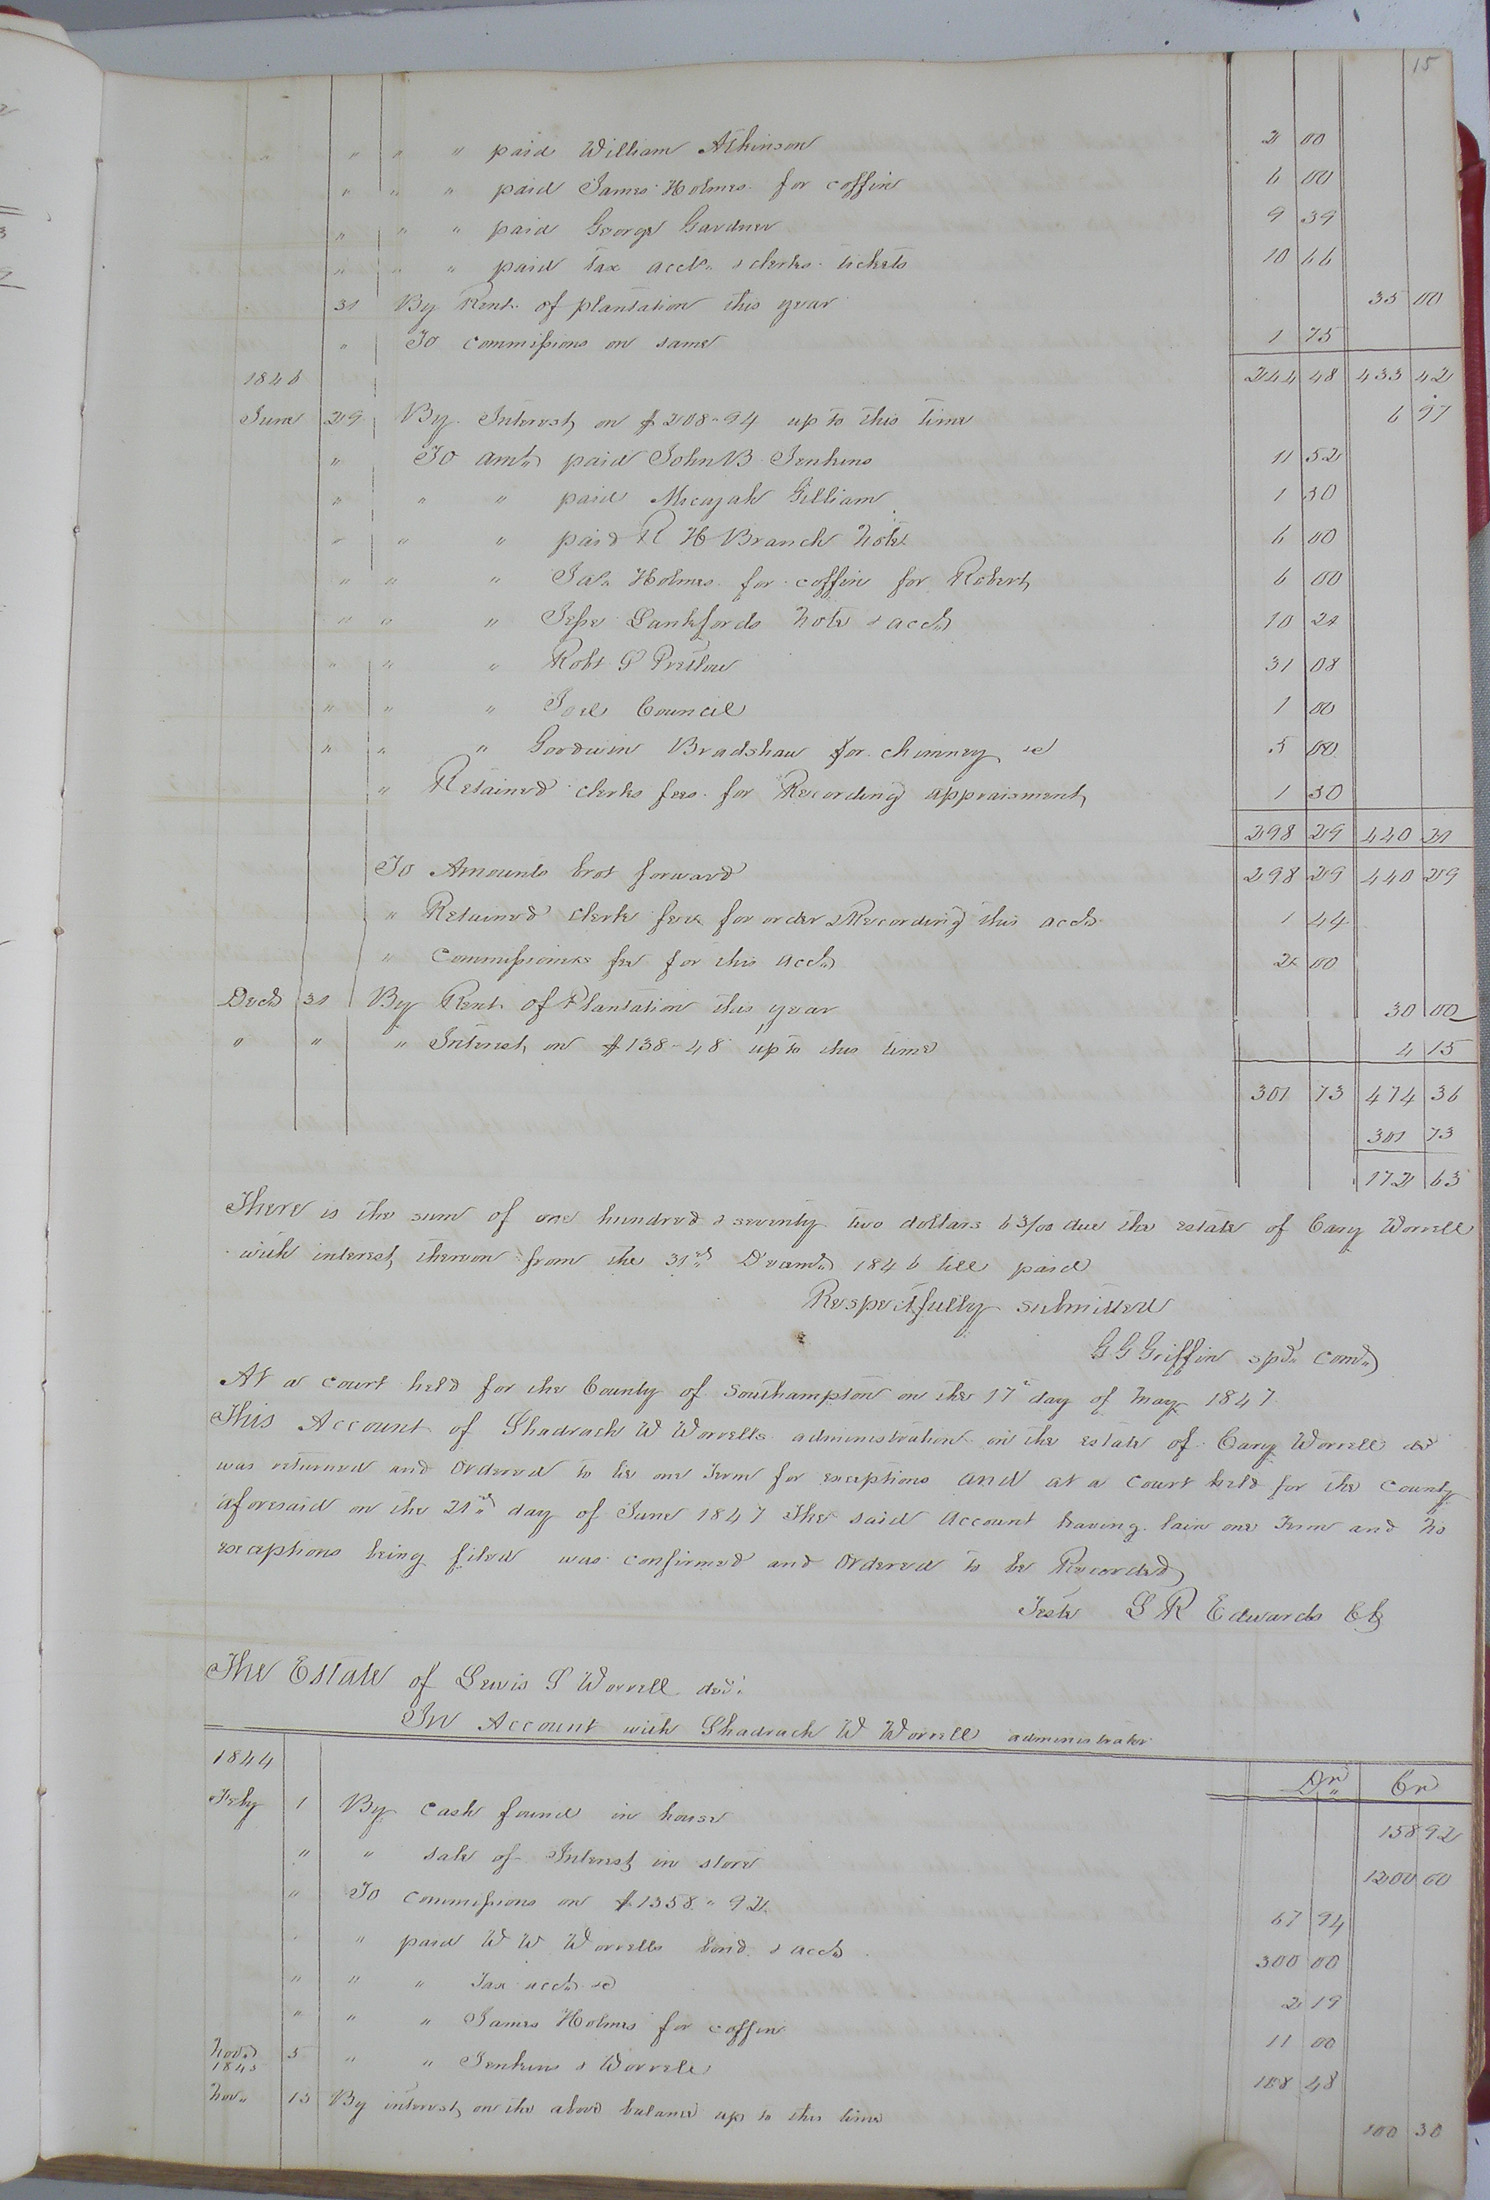 15
" " " paid William Atkinson 2 00
" " " paid James Holmes for coffin 6 00
" " " paid George Gardner 9 39
" " " paid tax acct. & clerks tickets 10 66
31 By Rent of plantation this year 35 00
" To commissions on same 1 75
1846 244 48 433 42
June 29 By Interest on $208-94 up to this time 6 97
" To amt. paid John B Jenkins 11 52
" " " paid Micajah Gilliam 1 30
" " " paid R H Branch Note 6 00
" " " Jas. Holmes for coffin for Robert 6 00
" " " Jesse Lankfords Note & acct. 10 21
" " " Robt S Pretlow 31 08
" " " Joel Council 1 00
" " " Goodwin Bradshaw for chimney &c 5 00
" Retained clerks fees for Recording appraisment 1 30
298 29 440 31
To Amounts brot forward 298 29 440 29
" Retained clerks fees for order & Recording this acct. 1 44
" Commissioners fee for this acct. 2 00
Decr. 31 By Rent of Plantation this year 30 00
" " " Interest on $138-48 up to this time 4 15
301 73 474 36
301 73
172 63
There is the sum of one hundred & seventy two dollars 63/00 due the estate of Cary Worrell
with interest thereon from the 31st Decemr. 1846 till paid
Respectfully submitted
G G Griffin spl. comr.
At a court held for the County of Southampton on the 17th day of May 1847
This Account of Shadrach W Worrells administration on the estate of Cary Worrell decd
was returned and Ordered to lie one Term for exceptions and at a Court held for the County
aforesaid on the 21st day of June 1847 The said Account having lain one Term and No
exceptions being filed was confirmed and Ordered to be Recorded
Teste L R Edwards Clk
The Estate of Lewis S Worrell decd.
In Account with Shadrach W Worrell administrator
1844 Dr. Cr
Feby 1 By Cash found in house 158 92
" " sale of Interest in store 1200 00
" To commissions on $1358 " 92 67 94
" " paid W W Worrells bond & acct. 300 00
" " " Tax acct. &c 2 19
" " " James Holmes for coffin 11 00
Novr. 5 " " Jenkins & Worrell 188 48
1845
Nov. 15 By interest on the above balance up to this time 100 30